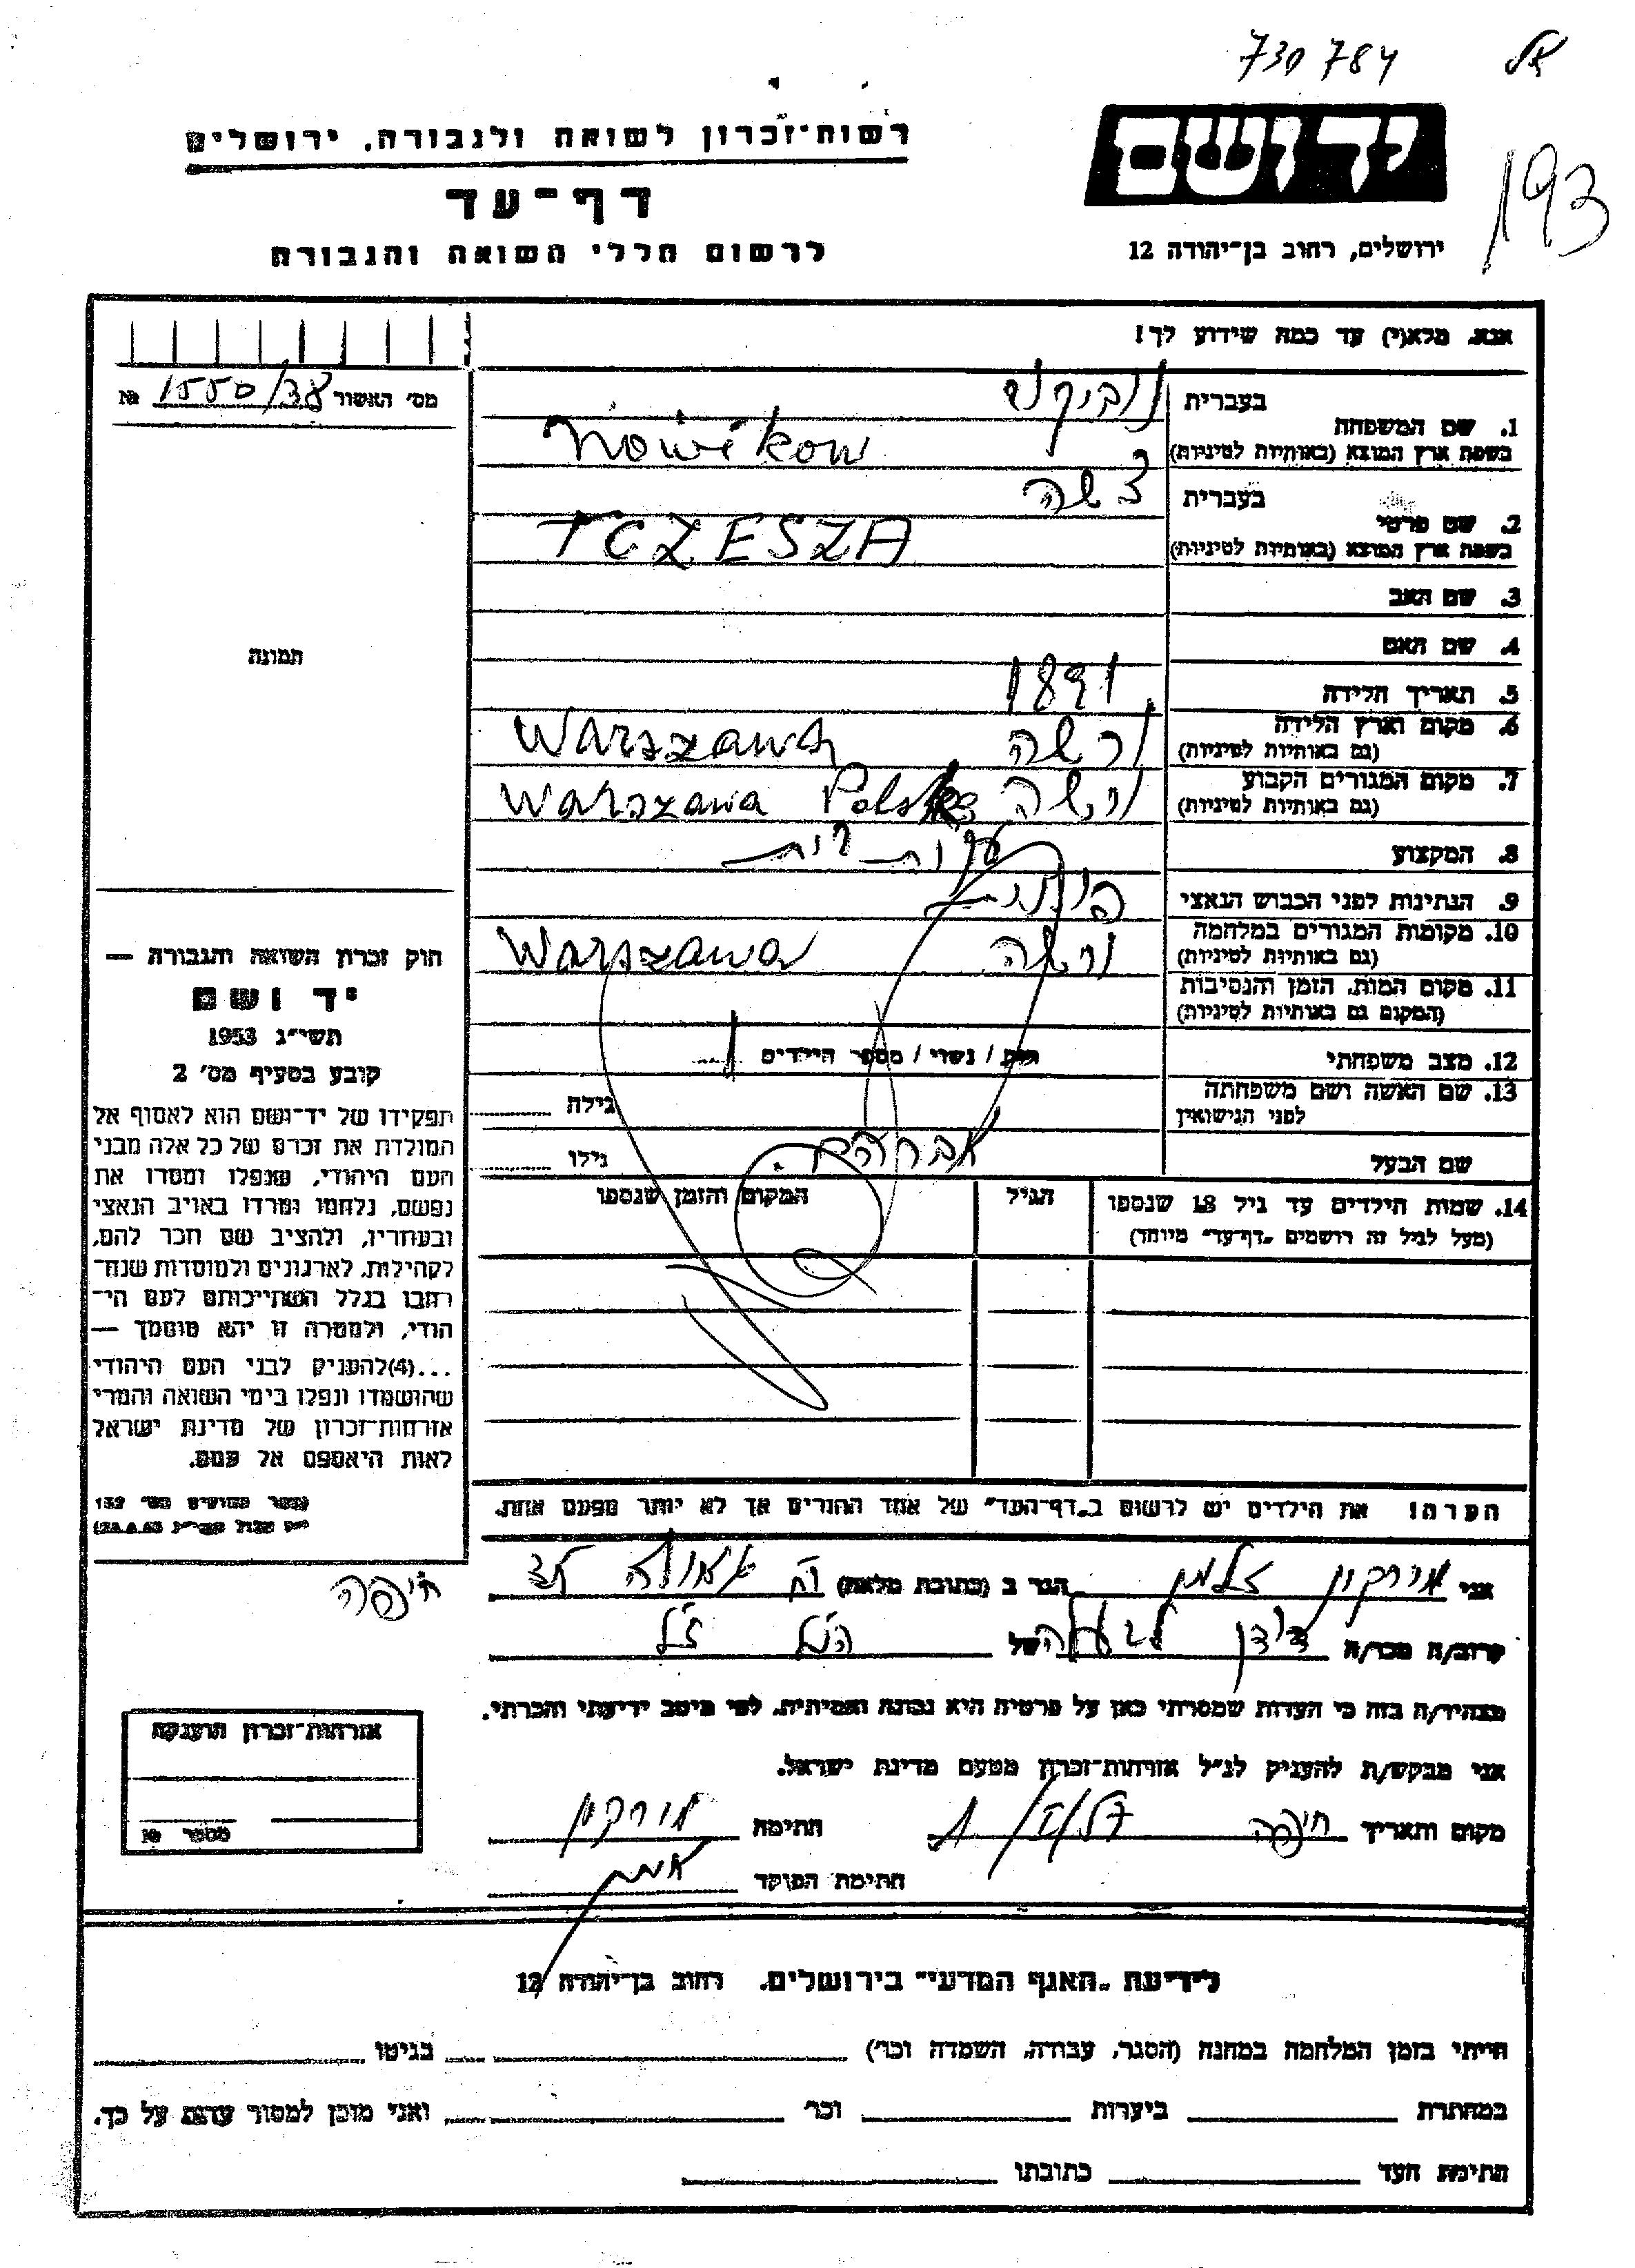 730784
193
יד ושם
רשות־זכרון לשואה ולגבורה, ירושלים
דף־עד
לרשום חללי השואה והגבורה
ירושלים, רחוב בן־יהודה 12
אנא, מלא(י) עד כמה שידוע לך!
מס׳ האשור 1550/38 №
בעברית
1. שם המשפחה
בשפת ארץ המוצא (באותיות לטיניות) Nowikow
בעברית
2. שם פרטי
בשפת ארץ המוצא (באותיות לטיניות) TCZESZA
3. שם האב
4. שם האם
תמונה
5. תאריך הלידה 1891
6. מקום וארץ הלידה ורשה Warszawa
(גם באותיות לטיניות)
7. מקום המגורים הקבוע ורשה Warszawa Polska
(גם באותיות לטיניות)
8. המקצוע
9. הנתינות לפני הכבוש הנאצי
10. מקומות המגורים במלחמה ורשה Warszawa
(גם באותיות לטיניות)
11. מקום המות, הזמן והנסיבות
(המקום גם באותיות לטיניות)
12. מצב משפחתי רווק / נשוי / מספר הילדים 1
13. שם האשה ושם משפחתה
לפני הנישואין גילה
שם הבעל אברהם גילו
14. שמות הילדים עד גיל 18 שנספו הגיל המקום והזמן שנספו
(מעל לגיל זה רושמים „דף־עד״ מיוחד)
חוק זכרון השואה והגבורה —
יד ושם
תשי״ג 1953
קובע בסעיף מס׳ 2
תפקידו של יד־ושם הוא לאסוף אל
המולדת את זכרם של כל אלה מבני
העם היהודי, שנפלו ומסרו את
נפשם, נלחמו ומרדו באויב הנאצי
ובעוזריו, ולהציב שם וזכר להם,
לקהילות, לארגונים ולמוסדות שנח־
רבו בגלל השתייכותם לעם הי־
הודי, ולמטרה זו יהא מוסמך —
...(4)להעניק לבני העם היהודי
שהושמדו ונפלו בימי השואה והמרי
אזרחות־זכרון של מדינת ישראל
לאות היאספם אל עמם.
הערה! את הילדים יש לרשום ב„דף־העד״ של אחד ההורים אך לא יותר מפעם אחת.
אני מורקון זלמן הגר ב (כתובת מלאה)
חיפה
קרוב/ה מכר/ה של
מצהיר/ה בזה כי העדות שמסרתי כאן על פרטיה היא נכונה ואמיתית, לפי מיטב ידיעתי והכרתי.
אני מבקש/ת להעניק לנ״ל אזרחות־זכרון מטעם מדינת ישראל.
מקום ותאריך חיפה חתימה מורקון
חתימת הפוקד
אזרחות־זכרון הוענקה
מספר №
לידיעת „האגף המדעי״ בירושלים, רחוב בן־יהודה 12
הייתי בזמן המלחמה במחנה (הסגר, עבודה, השמדה וכו׳) בגיטו
במחתרת ביערות וכו׳ ואני מוכן למסור עדות על כך.
חתימת העד כתובתו